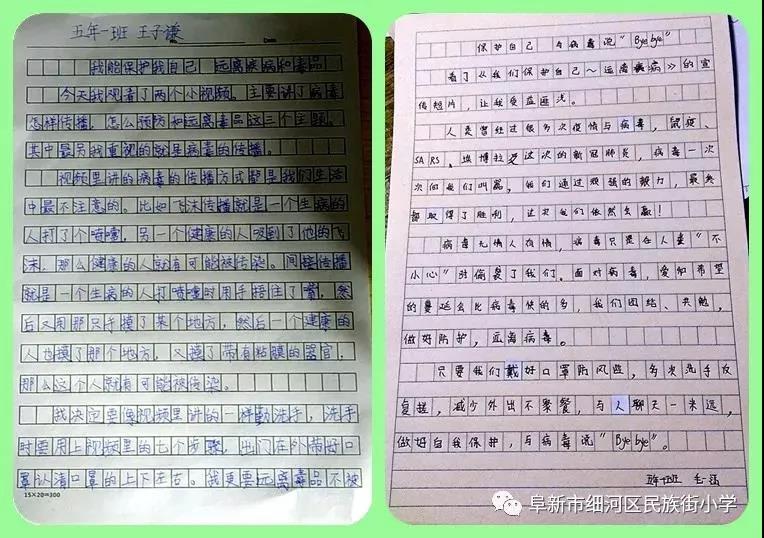 五年一班 王子谦
No.
Date
我能保护我自己 远离疾病和毒品
今天我观看了两个小视频。主要讲了病毒
怎样传播,怎么预防如远离毒品这三个主题。
其中最另我重视的就是病毒的传播。
视频里讲的病毒的传播方式都是我们生活
中最不注意的。比如飞沫传播就是一个生病的
人打了个喷嚏,另一个健康的人吸到了他的飞
沫,那么健康的人就有可能被传染。间接传播
就是一个生病的人打喷嚏时用手捂住了嘴,然
后又用那只手摸了某个地方,然后一个健康的
人也摸了那个地方,又摸了带有粘膜的器官,
那么这个人就有可能被传染。
我决定要像视频里讲的一样勤洗手,洗手
时要用上视频里的七个步骤,出门在外带好口
罩认清口罩的上下左右。我更要远离毒品不被
15×20=300
保护自己 与病毒说“Byebye”
看了《我们保护自己~远离疾病》的宣
传短片,让我受益匪浅。
人类曾经过很多次疫情与病毒,鼠疫、
SARS、埃博拉及这次的新冠肺炎,病毒一次
次向我们叫嚣,咱们通过顽强的毅力,最终
都取得了胜利,这次我们依然会赢!
病毒无情人有情,病毒只是在人查“不
小心”时偷袭了我们。面对病毒,爱和希望
的蔓延会比病毒快的多,我们团结、共勉,
做好防护,远离病毒。
只要我们戴好口罩防风险,多次洗手反
复搓,减少外出不聚餐,与人聊天一米远,
做好自我保护,与病毒说“Byebye”。
班
阜新市细河区民族街小学